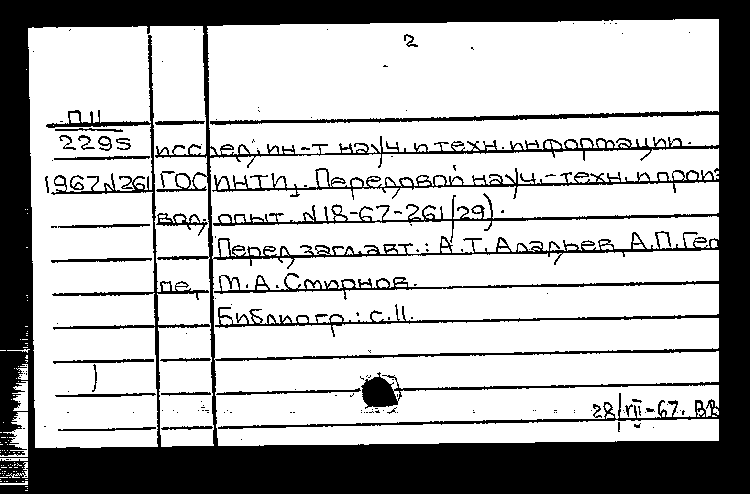 2
П.11
2295 исслед. ин-т науч. и техн. информации.
1967 №261 ГОСИНТИ]. Передовой науч.-техн. и произ
вод. опыт. №18-67-261/29).
Перед загл. авт.: А.Т. Аладьев, А.П. Гер
пе, М.А. Смирнов.
Библиогр.: с.11.
28/VII-67. ВВ